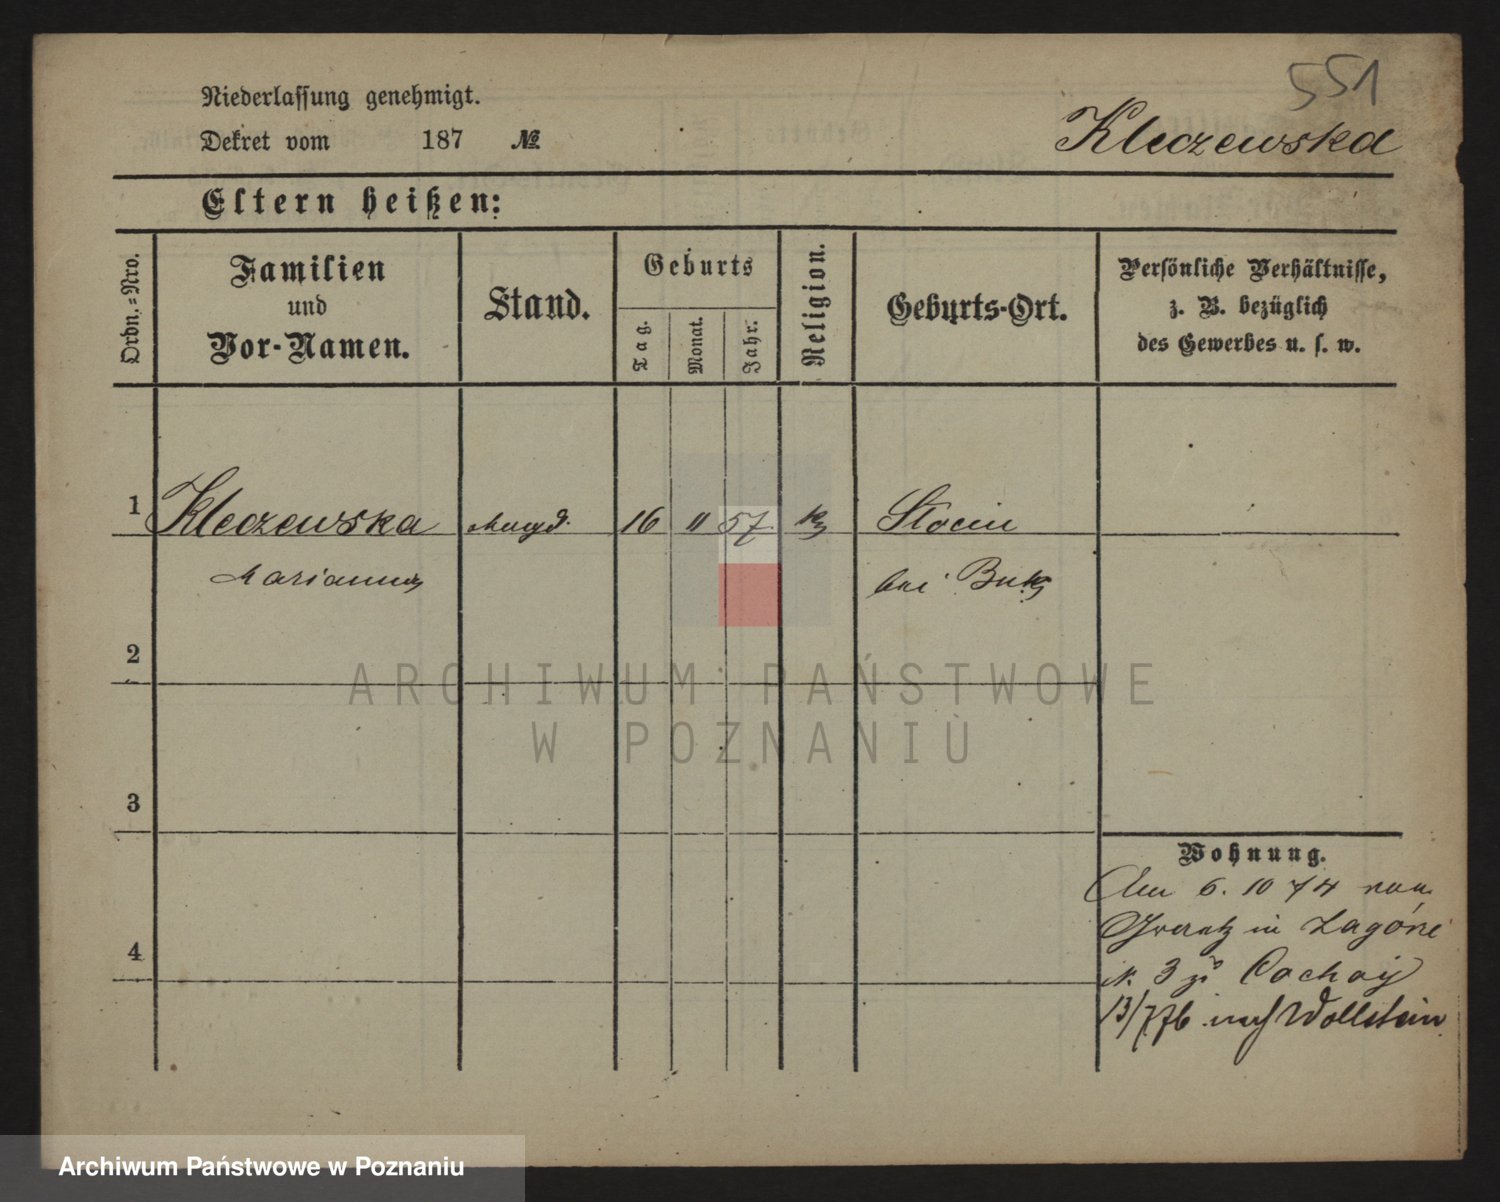 551
Niederlassung genehmigt.
Dekret vom 187 №
Kleczewska
Eltern heißen:
Ordn.=Nro.
Familien
und
Vor-Namen.
Stand.
Geburts
Tag.
Monat.
Jahr.
Religion.
Geburts-Ort.
Persönliche Verhältnisse,
z. B. bezüglich
des Gewerbes u. s. w.
1 Kleczewska Magd. 16 11 57 k
Marianna bei Buk
2
ARCHIWUM PAŃSTWOWE
W POZNANIU
3
Wohnung.
6. 10 74 von
in
4
N. 3 zu
13/7 76 nach Wollstein
Archiwum Państwowe w Poznaniu